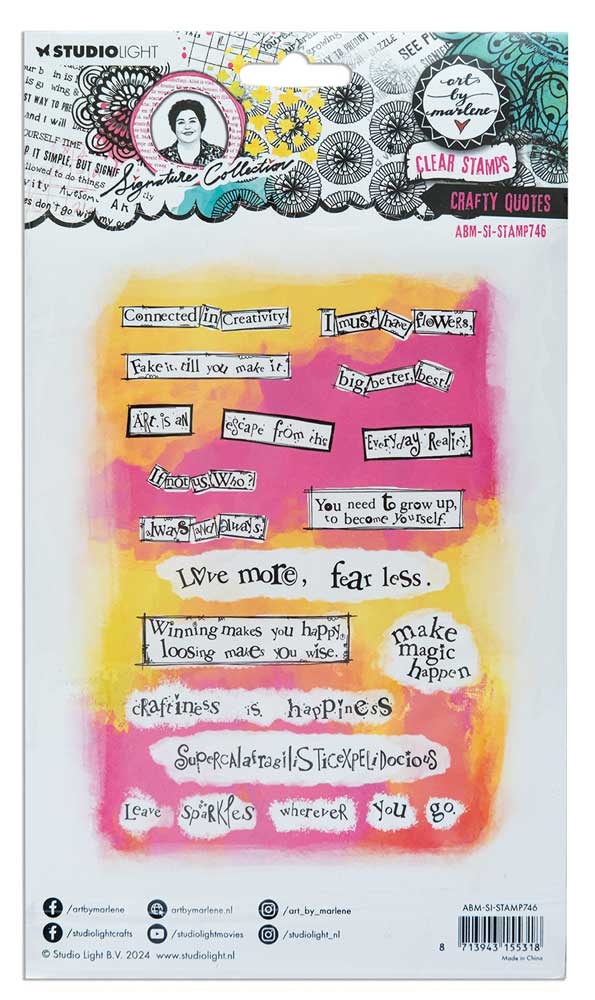 STUDIOLIGHT
art
by
marlene
Signature Collection
CLEAR STAMPS
CRAFTY QUOTES
ABM-SI-STAMP746
Connected in Creativity!
I must have flowers,
Fake it, till you make it.
big, better, best!
ART is an
escape from the
Everyday Reality.
If not us, Who?
You need to grow up,
to become yourself.
always and always.
Love more, fear less.
Winning makes you happy,
loosing makes you wise.
make
magic
happen
craftiness is happiness
SUPERCALAfragiliSTICEXPELiDOCIOUS
Leave SPARKLES wherever you go.
/artbymarlene
artbymarlene.nl
/art_by_marlene
/studiolightcrafts
/studiolightmovies
/studiolight_nl
© Studio Light B.V. 2024 www.studiolight.nl
ABM-SI-STAMP746
8 713943 155318
Made in China